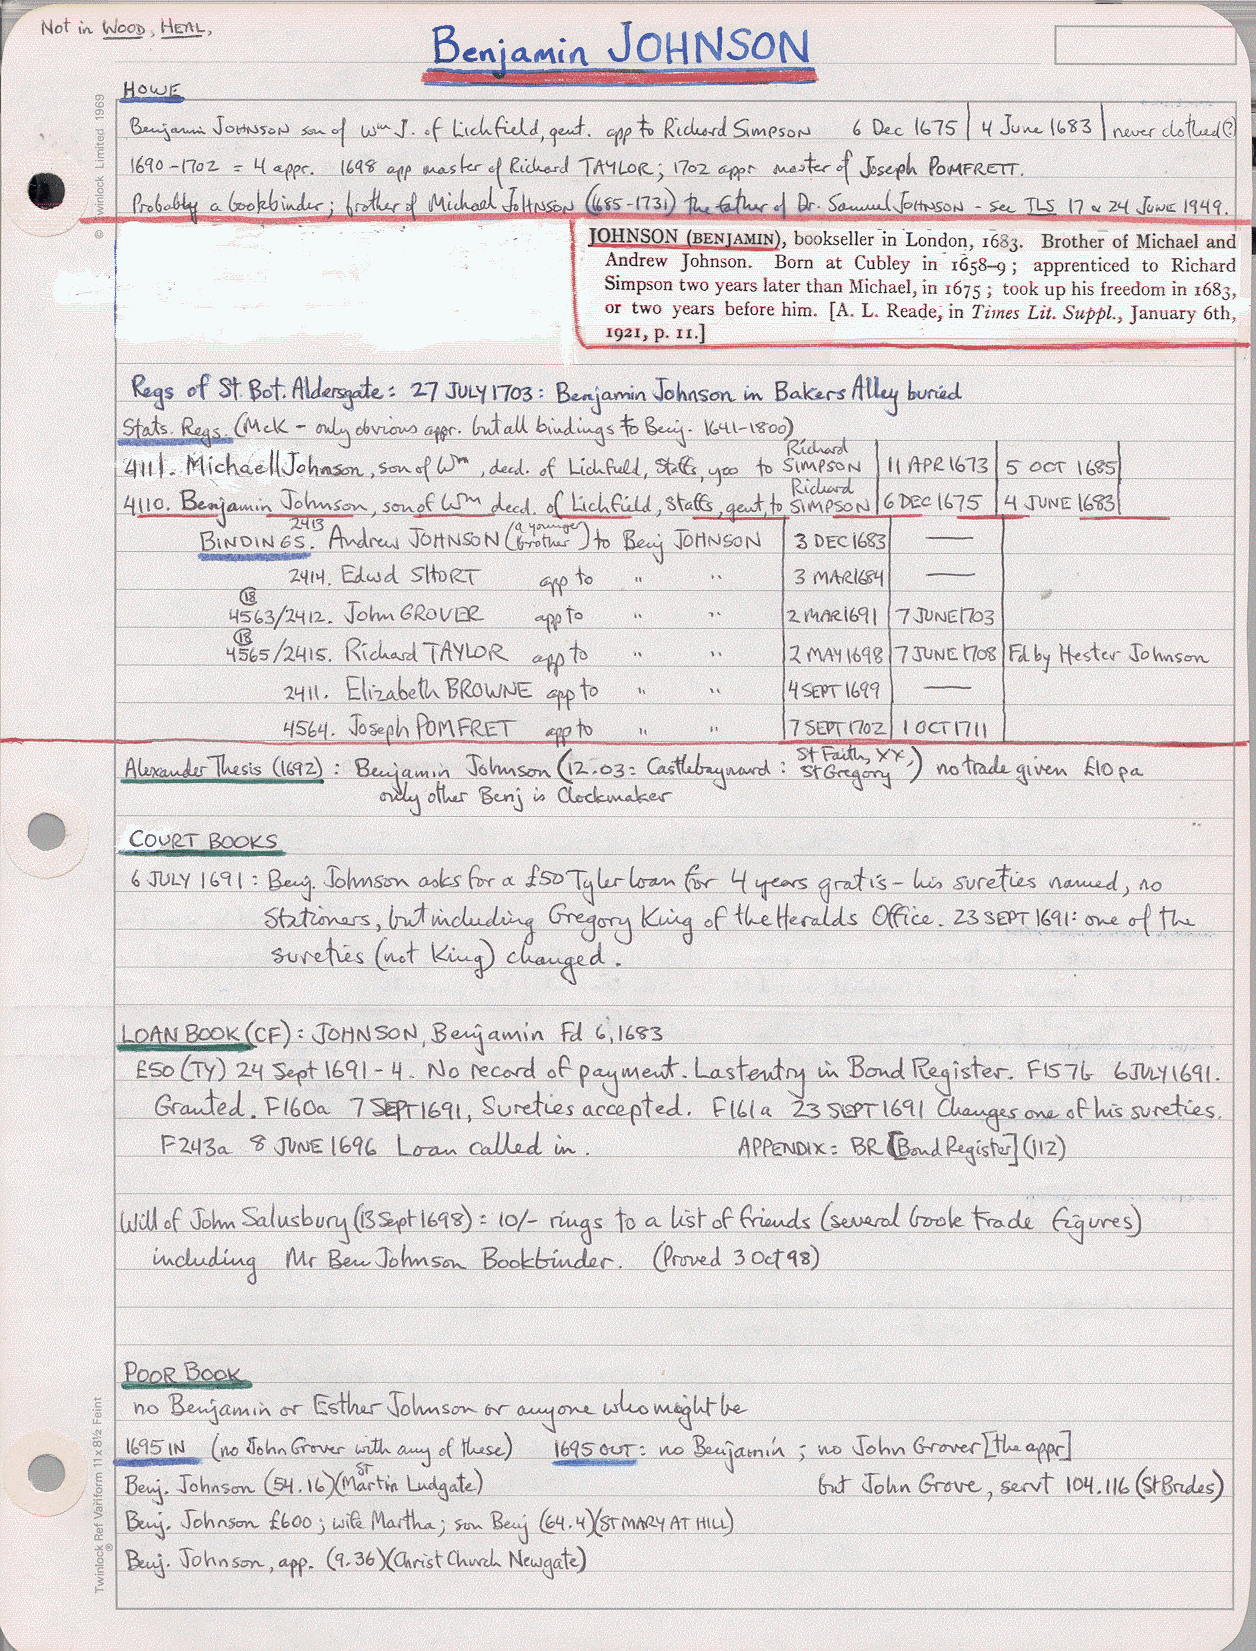 Not in WOOD, HEAL,
Benjamin JOHNSON
HOWE
Benjamin JOHNSON son of Wm J. of Lichfield, gent. app to Richard SIMPSON 6 Dec 1675 | 4 June 1683 | never clothed(?)
1690-1702 = 4 appr. 1698 app master of Richard TAYLOR; 1702 appr master of Joseph POMFRETT.
Probably a bookbinder; brother of Michael JOHNSON (1685-1731) the father of Dr. Samuel JOHNSON - see TLS 17 & 24 JUNE 1949.
JOHNSON (BENJAMIN), bookseller in London, 1683. Brother of Michael and
Andrew Johnson. Born at Cubley in 1658-9; apprenticed to Richard
Simpson two years later than Michael, in 1675; took up his freedom in 1683,
or two years before him. [A. L. Reade, in Times Lit. Suppl., January 6th,
1921, p. 11.]
Regs of St. Bot. Aldersgate: 27 JULY 1703: Benjamin Johnson in Bakers Alley buried
Stats. Regs. (McK - only obvious appr. but all bindings to Benj. 1641-1800)
4111. Michaell Johnson, son of Wm, decd. of Lichfield, Staffs, yeo to Richard SIMPSON | 11 APR 1673 | 5 OCT 1685
4110. Benjamin Johnson, son of Wm decd. of Lichfield, Staffs, gent, to Richard SIMPSON | 6 DEC 1675 | 4 JUNE 1683
BINDINGS. 2413 Andrew JOHNSON (a younger brother) to Benj JOHNSON | 3 DEC 1683 | —
2414. Edwd SHORT app to " " | 3 MAR 1684 | —
(18) 4563/2412. John GROVER app to " " | 2 MAR 1691 | 7 JUNE 1703
(18) 4565/2415. Richard TAYLOR app to " " | 2 MAY 1698 | 7 JUNE 1708 | Fd by Hester Johnson
2411. Elizabeth BROWNE app to " " | 4 SEPT 1699 | —
4564. Joseph POMFRET app to " " | 7 SEPT 1702 | 1 OCT 1711
Alexander Thesis (1692): Benjamin Johnson (12.03: Castlebaynard: St Faith, XX, St Gregory) no trade given £10 pa
only other Benj is Clockmaker
COURT BOOKS
6 JULY 1691: Benj. Johnson asks for a £50 Tyler loan for 4 years gratis - his sureties named, no
Stationers, but including Gregory King of the Heralds Office. 23 SEPT 1691: one of the
sureties (not King) changed.
LOAN BOOK (CF): JOHNSON, Benjamin Fd 6, 1683
£50 (TY) 24 Sept 1691-4. No record of payment. Last entry in Bond Register. F157b 6 JULY 1691.
Granted. F160a 7 SEPT 1691, Sureties accepted. F161a 23 SEPT 1691 Changes one of his sureties.
F243a 8 JUNE 1696 Loan called in. APPENDIX: BR [Bond Register] (112)
Will of John Salusbury (13 Sept 1698) = 10/- rings to a list of friends (several book trade figures)
including Mr Ben Johnson Bookbinder. (Proved 3 Oct 98)
POOR BOOK
no Benjamin or Esther Johnson or anyone who might be
1695 IN (no John Grover with any of these) 1695 OUT: no Benjamin; no John Grover [the appr]
Benj. Johnson (54.16) (St Martin Ludgate) but John Grove, servt 104.116 (St Brides)
Benj. Johnson £600; wife Martha; son Benj (64.4) (ST MARY AT HILL)
Benj. Johnson, app. (9.36) (Christ Church Newgate)
© Twinlock Limited 1969
Twinlock Ref Variform 11 x 8½ Feint